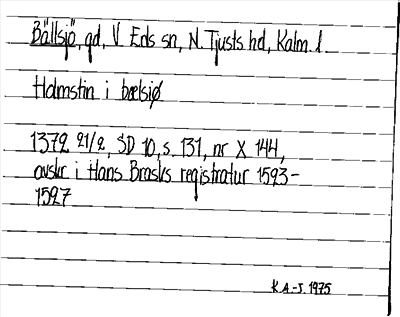 Bällsjö, gd, V. Eds sn, N. Tjusts hd, Kalm. l.
Holmstin i bælsiø
1372 21/2, SD 10, s. 131, nr X 144,
avskr. i Hans Brasks registratur 1523-
1527
K.A.-J. 1975